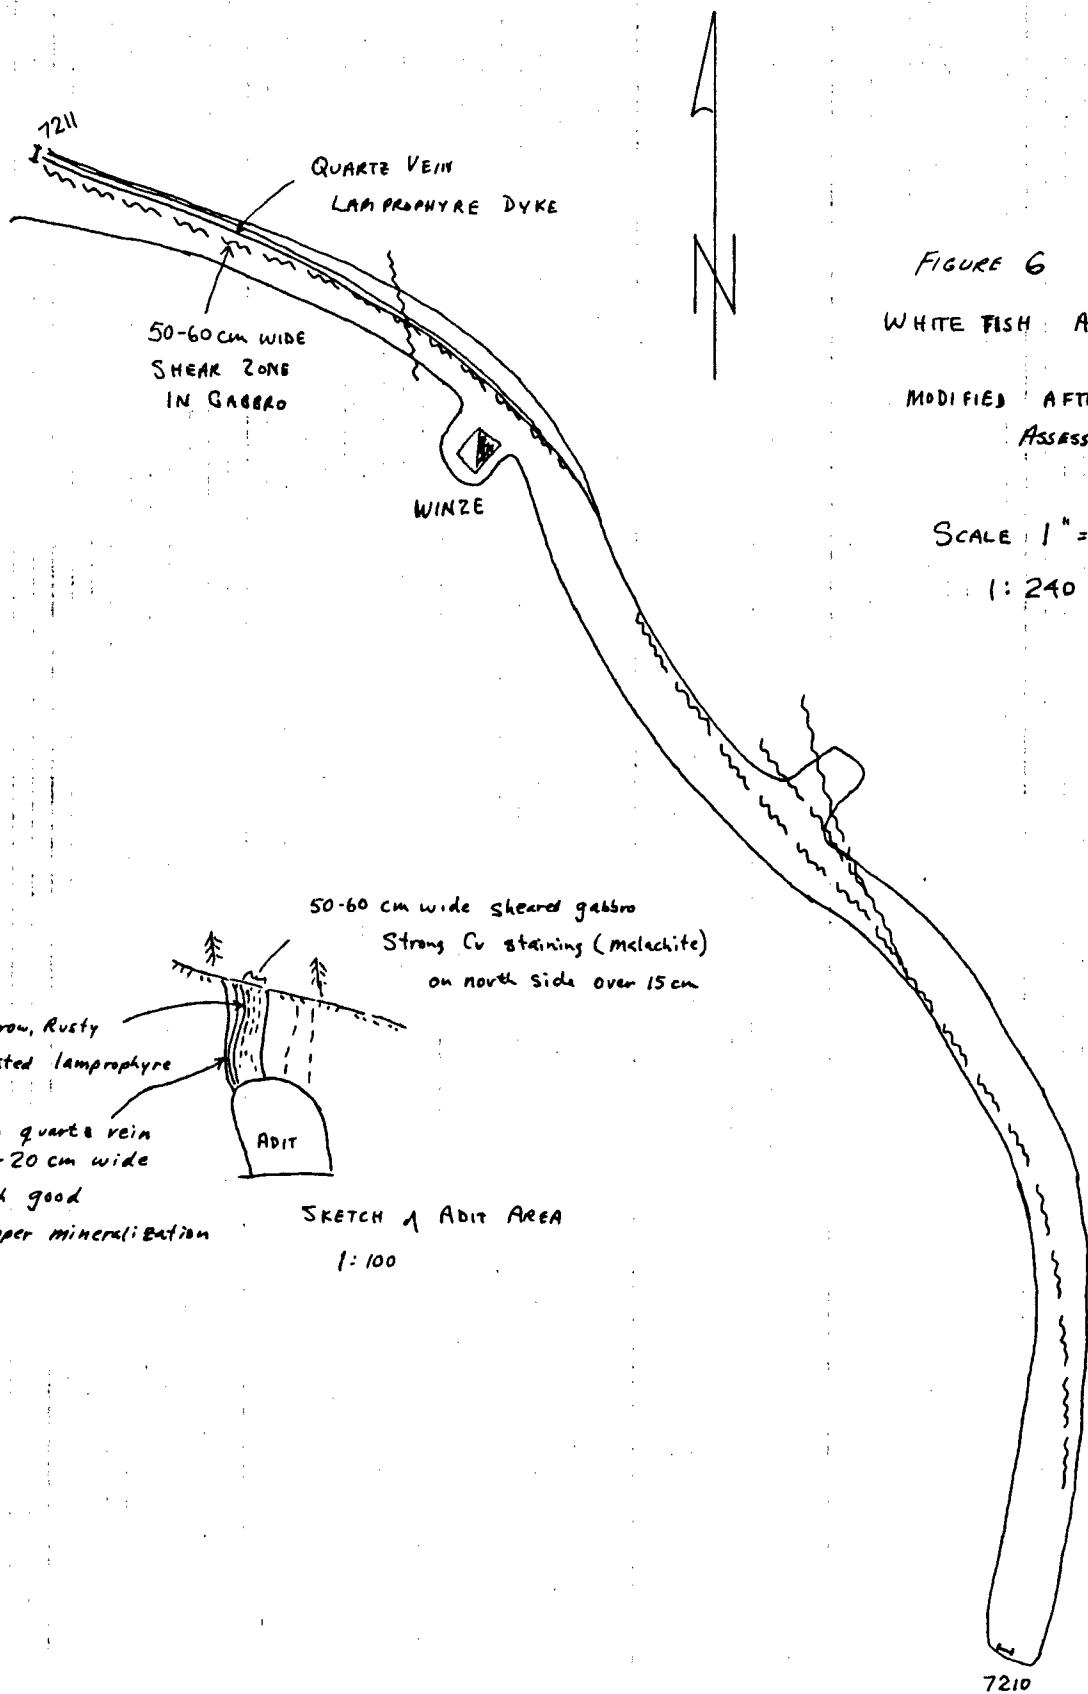 7211
QUARTZ VEIN
LAMPROPHYRE DYKE
50-60 cm WIDE
SHEAR ZONE
IN GABBRO
WINZE
N
FIGURE 6
WHITE FISH A
MODIFIED AFT
ASSESS
SCALE 1" =
1:240
50-60 cm wide sheared gabbro
Strong Cu staining (malachite)
on north side over 15 cm
row, Rusty
ted lamprophyre
quartz vein
-20 cm wide
good
per mineralization
ADIT
SKETCH of ADIT AREA
1:100
7210